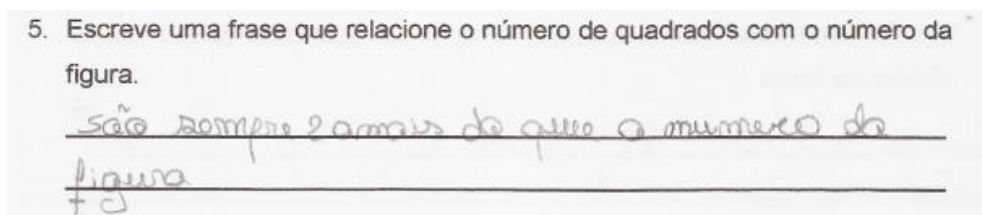 5. Escreve uma frase que relacione o número de quadrados com o número da
figura.
são sempre 2 amais do que o mumero da
figura